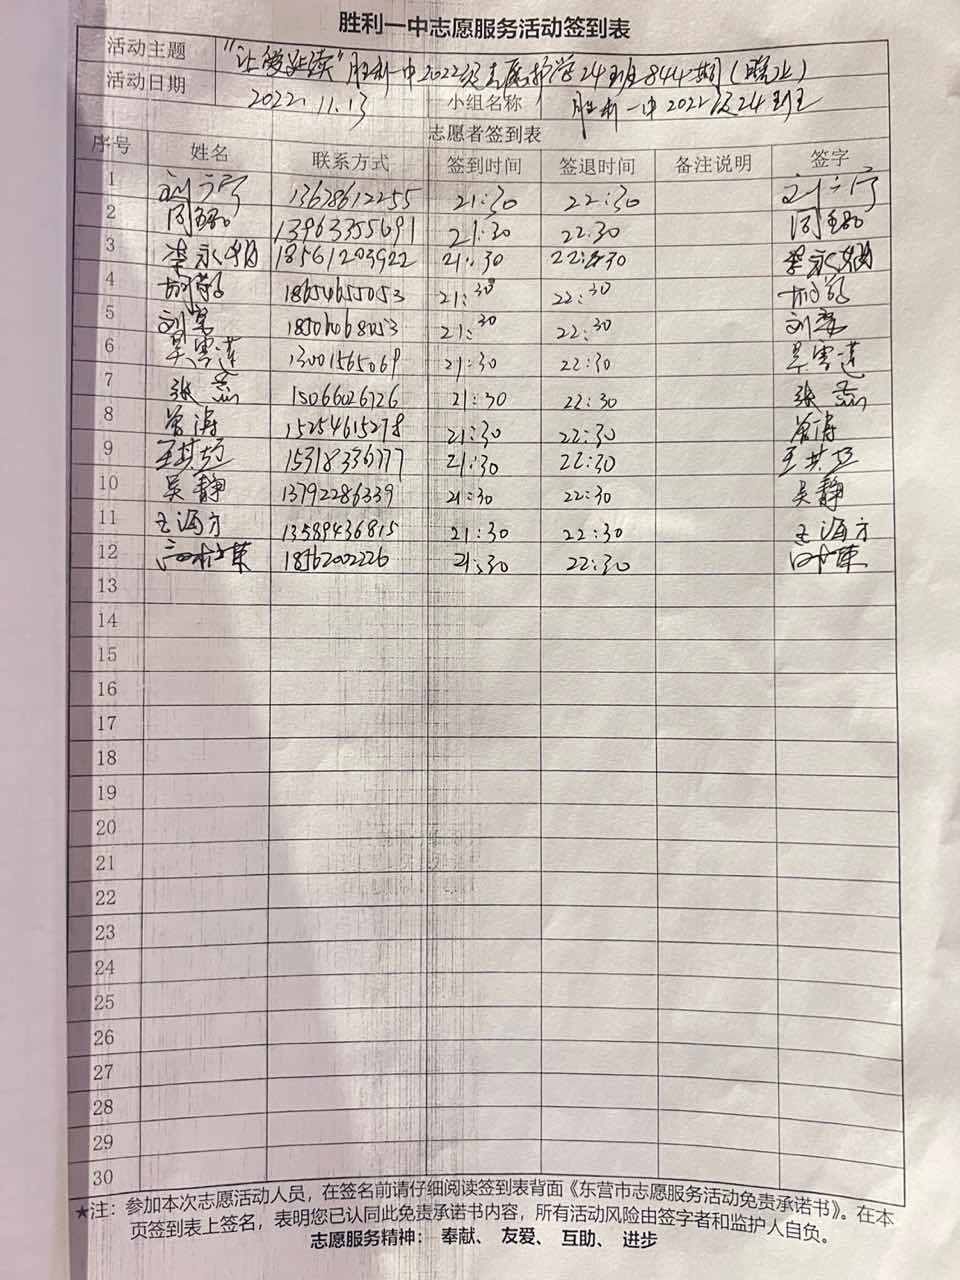 胜利一中志愿服务活动签到表
活动主题 "让爱延续"胜利一中2022级志愿护学24班844期(晚上)
活动日期 2022.11.13 小组名称 胜利一中2022级24班
志愿者签到表
序号 姓名 联系方式 签到时间 签退时间 备注说明 签字
1 刘 13678612255 21:30 22:30 刘
2 周 13963355691 21:30 22:30 周
3 李永娟 18561203922 21:30 22:30 李永娟
4 18654655053 21:30 22:30
5 刘 18506068053 21:30 22:30 刘
6 吴雪莲 13001565069 21:30 22:30 吴雪莲
7 张磊 15066026726 21:30 22:30 张磊
8 曾涛 15254615278 21:30 22:30 曾涛
9 王 15318336777 21:30 22:30 王
10 吴静 13792286339 21:30 22:30 吴静
11 王海方 13589436815 21:30 22:30 王海方
12 18562002226 21:30 22:30
13
14
15
16
17
18
19
20
21
22
23
24
25
26
27
28
29
30
★注：参加本次志愿活动人员，在签名前请仔细阅读签到表背面《东营市志愿服务活动免责承诺书》。在本
页签到表上签名，表明您已认同此免责承诺书内容，所有活动风险由签字者和监护人自负。
志愿服务精神： 奉献、 友爱、 互助、 进步